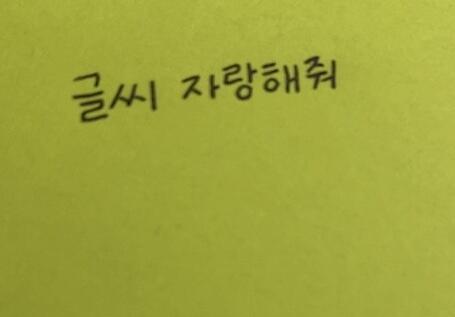 글씨 자랑해줘